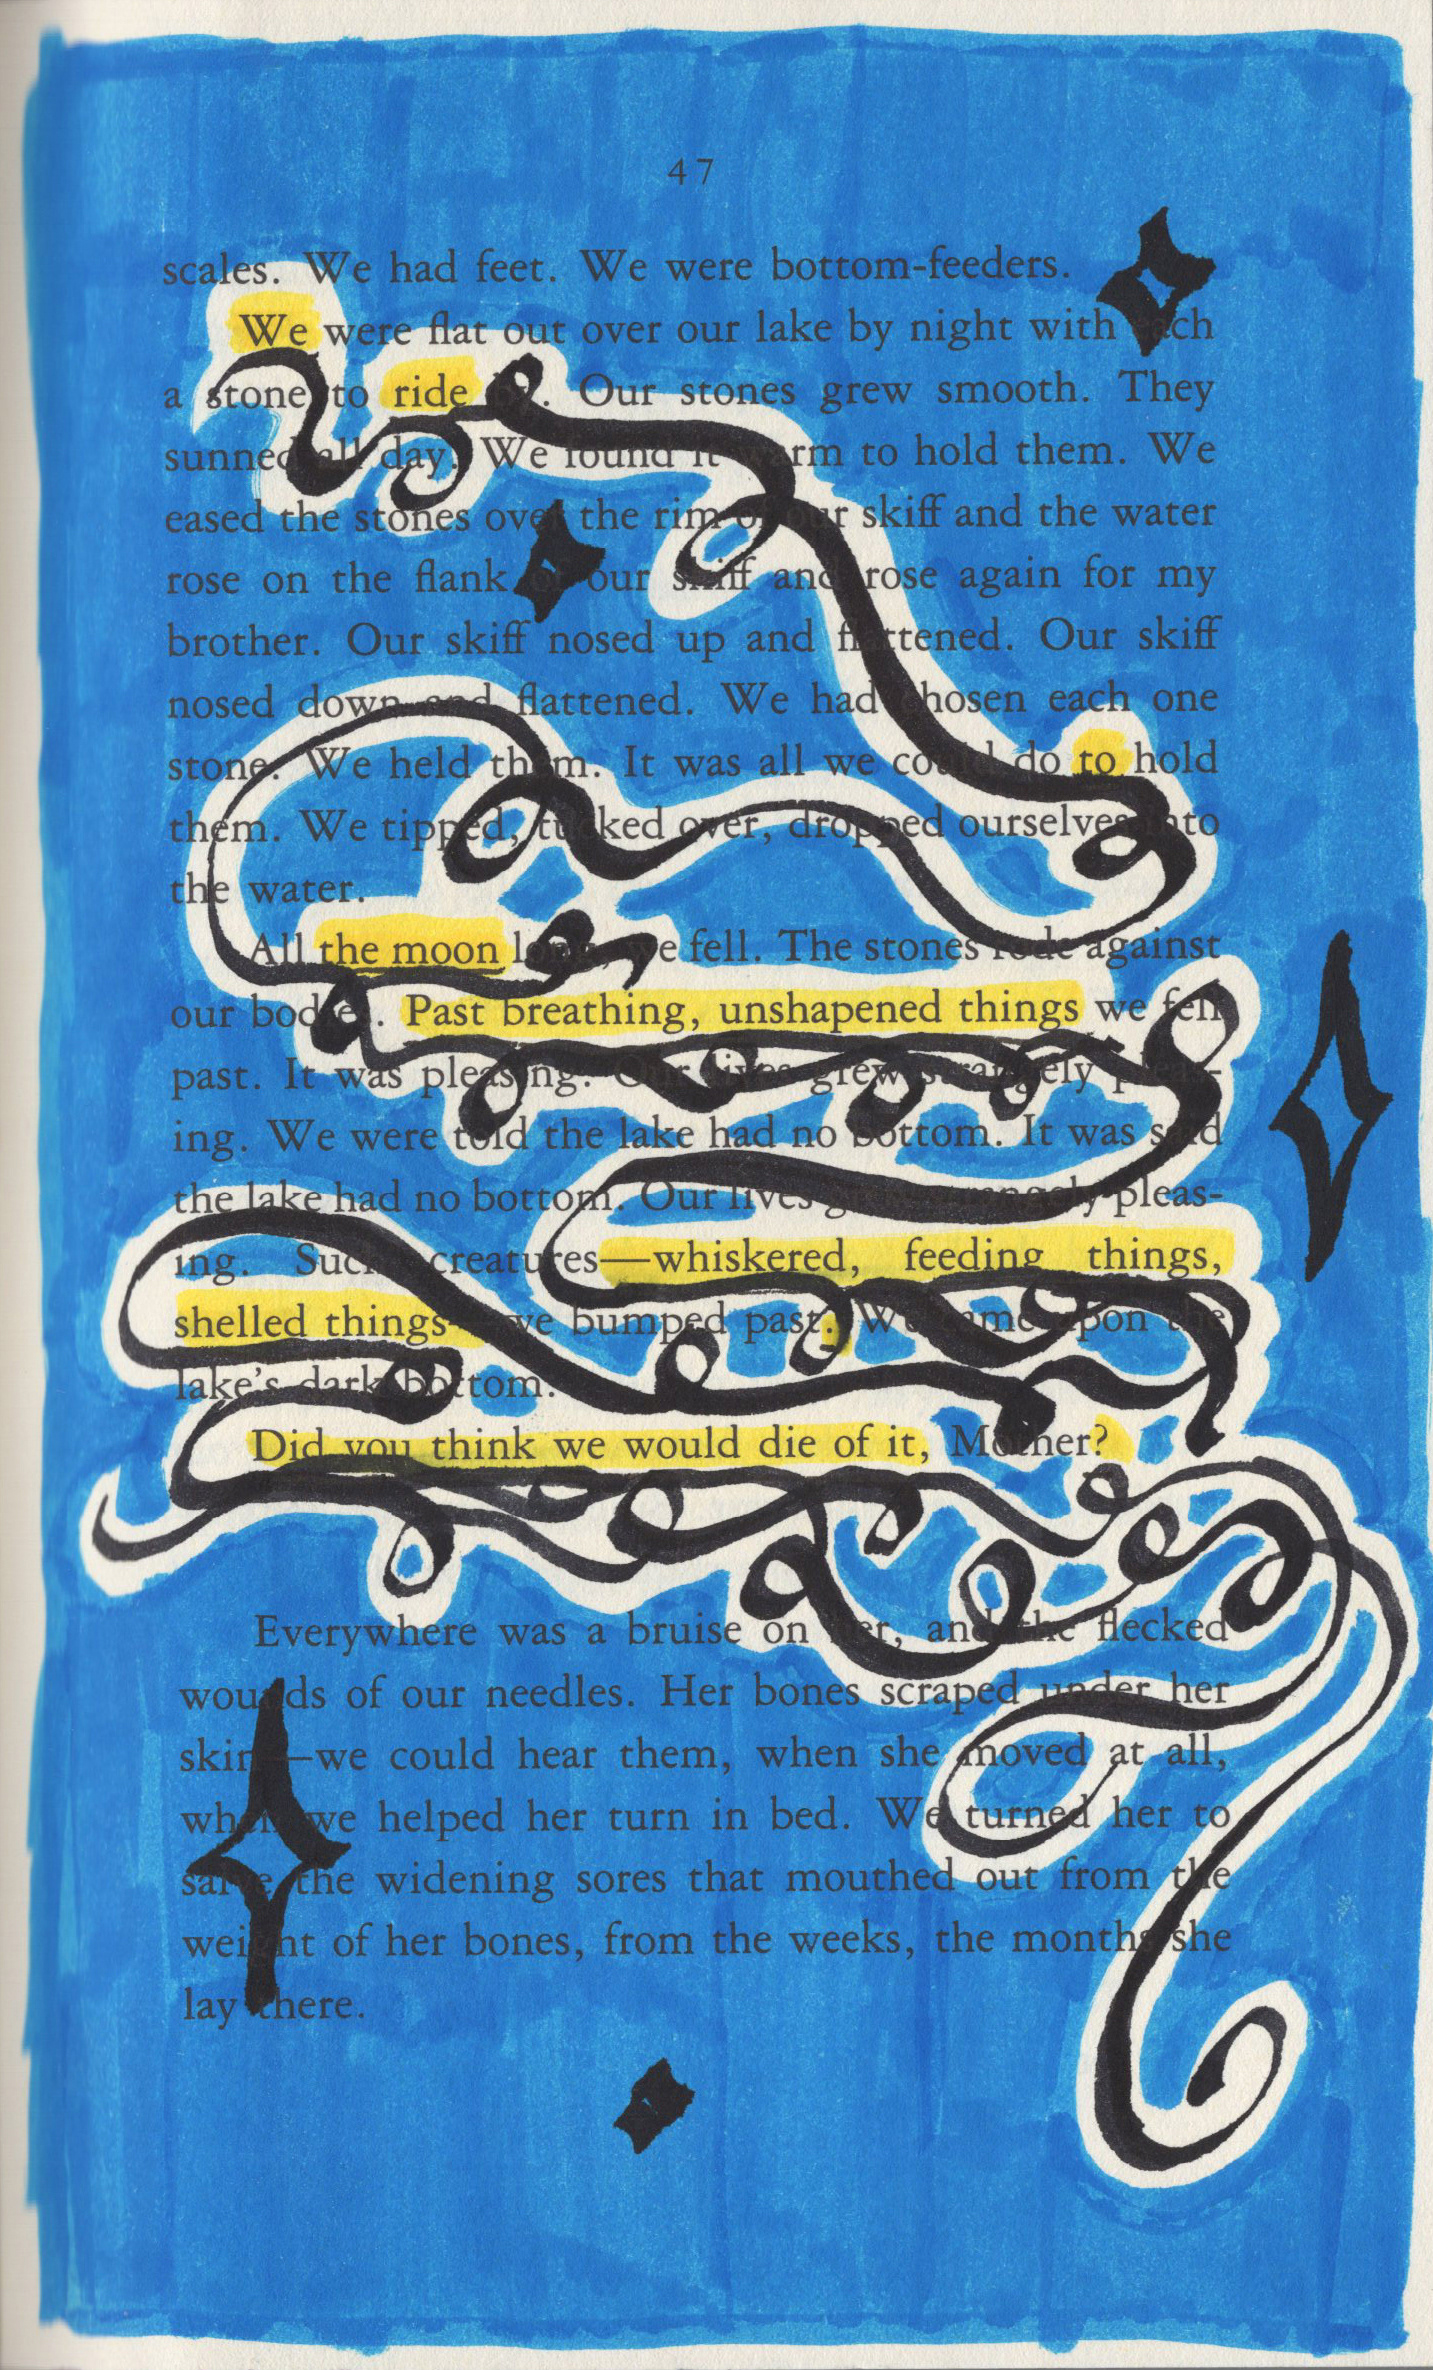 47
scales. We had feet. We were bottom-feeders.
We were flat out over our lake by night with each
a stone to ride by. Our stones grew smooth. They
sunned all day. We found it warm to hold them. We
eased the stones over the rim of our skiff and the water
rose on the flank of our skiff and rose again for my
brother. Our skiff nosed up and flattened. Our skiff
nosed down and flattened. We had chosen each one
stone. We held them. It was all we could do to hold
them. We tipped, tucked over, dropped ourselves into
the water.
All the moon long, we fell. The stones rode against
our bodies. Past breathing, unshapened things we fell
past. It was pleasing. Our lives grew strangely pleas-
ing. We were told the lake had no bottom. It was said
the lake had no bottom. Our lives grew strangely pleas-
ing. Such creatures—whiskered, feeding things,
shelled things—we bumped past. We came upon the
lake's dark bottom.
Did you think we would die of it, Mother?
Everywhere was a bruise on her, and the flecked
wounds of our needles. Her bones scraped under her
skin—we could hear them, when she moved at all,
when we helped her turn in bed. We turned her to
salve the widening sores that mouthed out from the
weight of her bones, from the weeks, the months she
lay there.